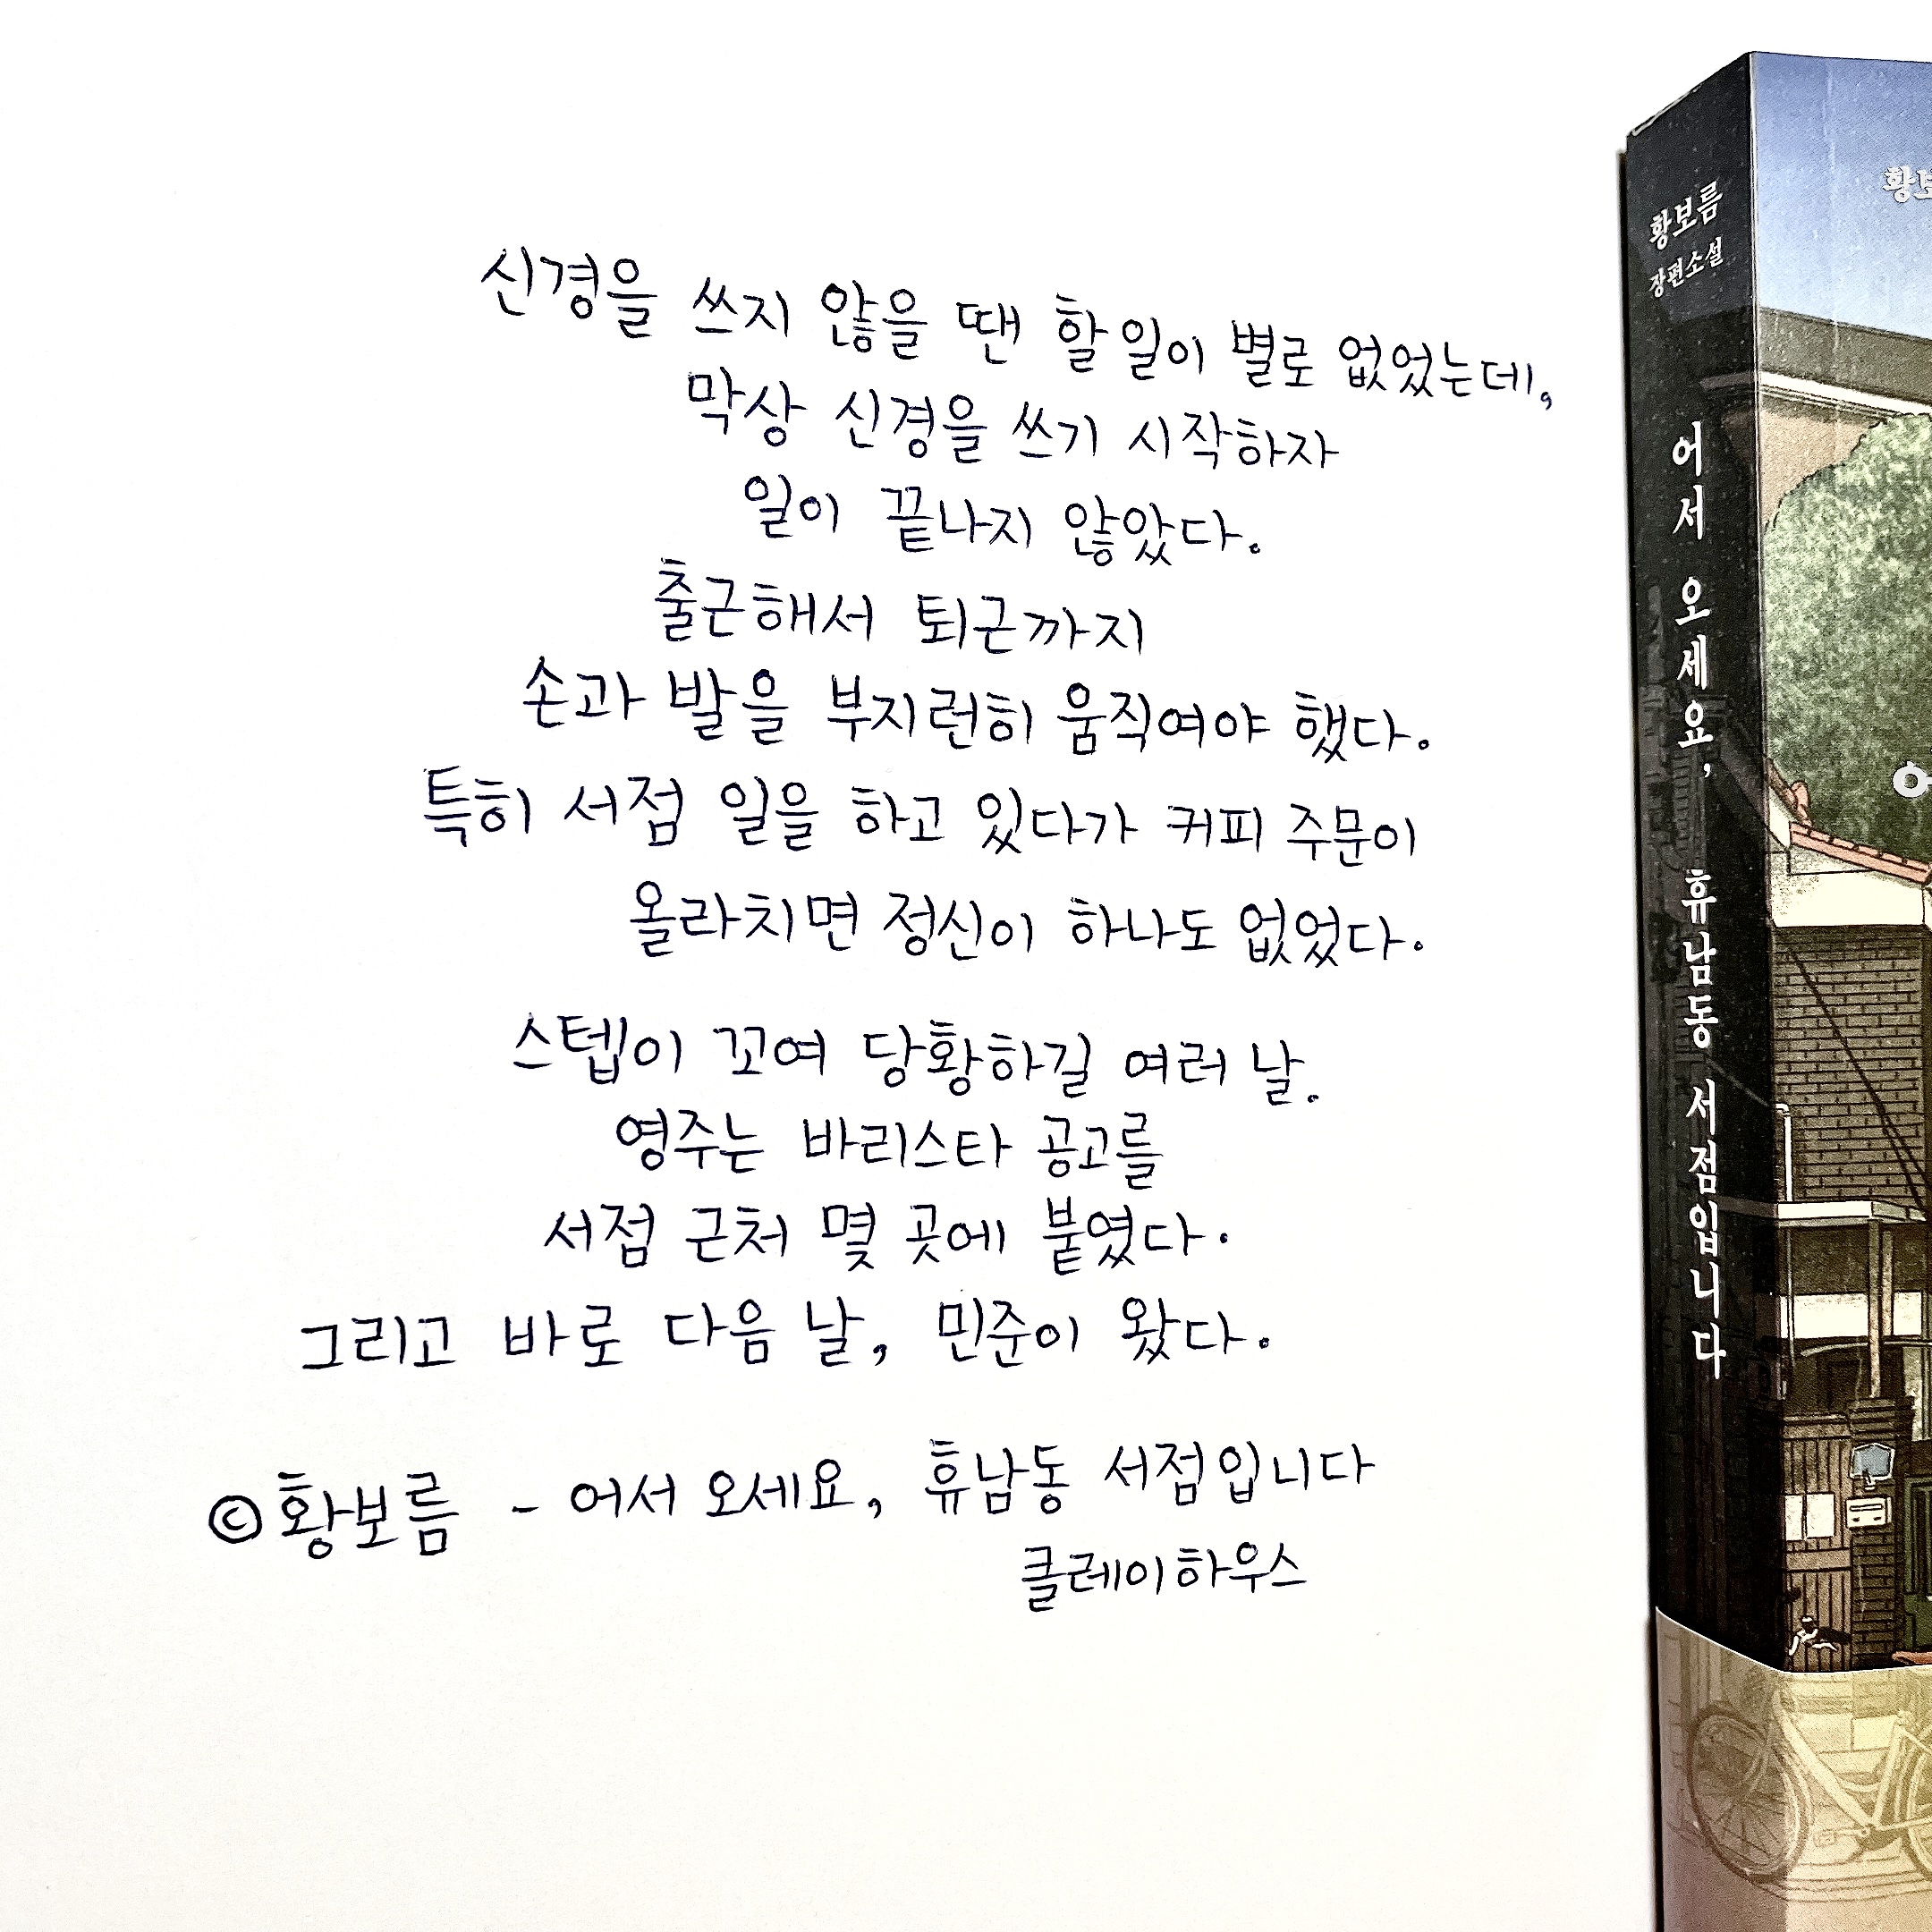 신경을 쓰지 않을 땐 할 일이 별로 없었는데,
막상 신경을 쓰기 시작하자
일이 끝나지 않았다.
출근해서 퇴근까지
손과 발을 부지런히 움직여야 했다.
특히 서점 일을 하고 있다가 커피 주문이
올라치면 정신이 하나도 없었다.
스텝이 꼬여 당황하길 여러 날.
영주는 바리스타 공고를
서점 근처 몇 곳에 붙였다.
그리고 바로 다음 날, 민준이 왔다.
© 황보름 - 어서 오세요, 휴남동 서점입니다
클레이하우스
황보름
장편소설
어서 오세요, 휴남동 서점입니다